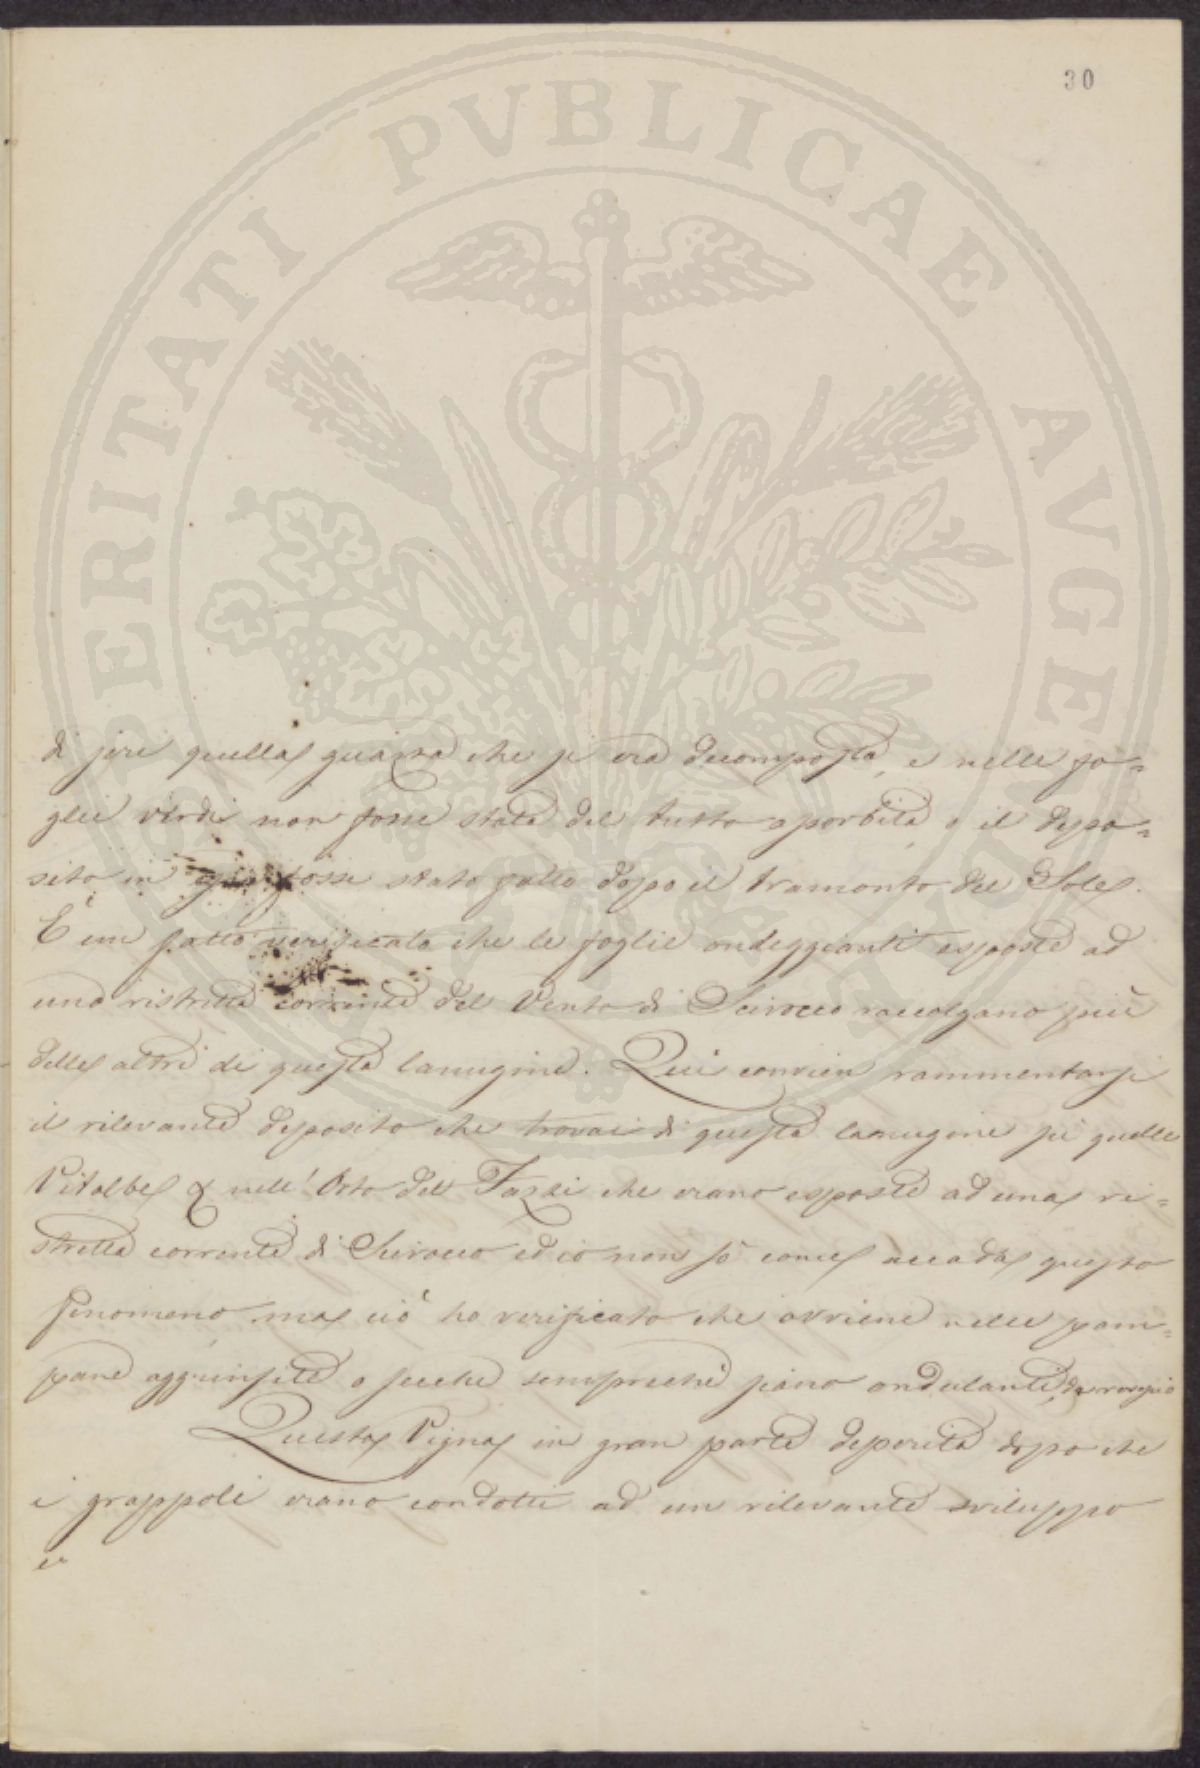 30
PROSPERITATI PVBLICAE AVGENDAE
di jeri quella guazza che si era decomposta, e nelle fo=
glie verdi non fosse stata del tutto assorbita, o il depo=
sito in fosse stato fatto dopo il tramonto del Sole.
È un fatto verificato che le foglie ondeggianti esposte ad
una ristretta corrente del Vento di Scirocco raccolgano più
delle altre di questa lanugine. Qui convien rammentarsi
il rilevante deposito che trovai di questa lanugine su quelle
Vitalbe nell' Orto del Fazzi che erano esposte ad una ri=
stretta corrente di Scirocco ed io non sò come accada questo
fenomeno, ma ciò ho verificato che avviene nelle pam=
pane o secche sempreché siano ondulanti,
Questa Vigna in gran parte deperita dopo che
i grappoli erano condotti ad un rilevante sviluppo